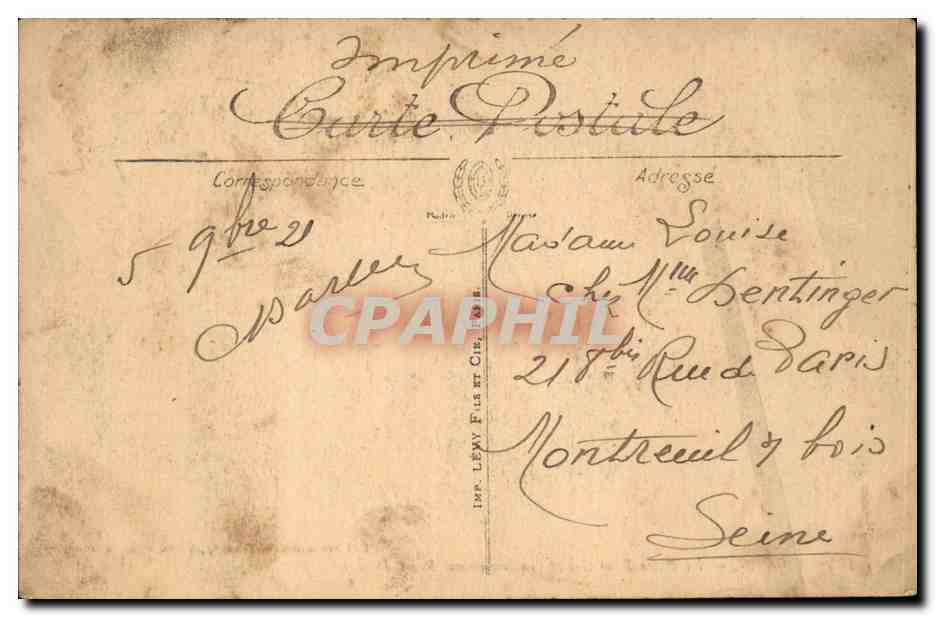 Imprimé
Carte Postale
Correspondance
Adresse
5 9bre 21
Madame Louise
chez Mme Dentinger
21 bis Rue de Paris
Montreuil s/ bois
Seine
IMP. LÉMY FILS ET CIE, PARIS.
CPAPHIL